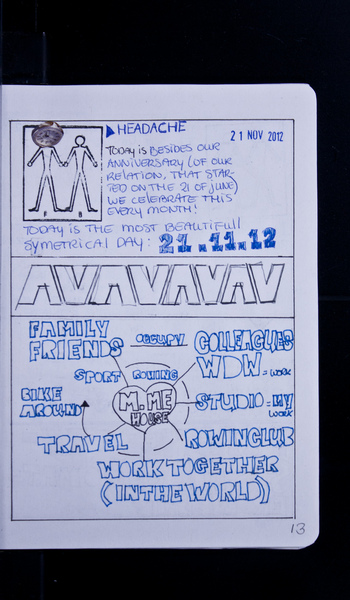 HEADACHE
21 NOV 2012
TODAY is BESIDES OUR
ANNIVERSARY (OF OUR
RELATION, THAT STAR-
TED ON THE 21 OF JUNE)
WE CELEBRATE THIS
EVERY MONTH!
TODAY IS THE MOST BEAUTIFULL
SYMETRICAL DAY: 21.11.12
AVAVAVAV
FAMILY
FRIENDS
OCCUPY
COLLEAGUES
WDW = WORK
SPORT
ROWING
BIKE
AROUND
M. ME
HOUSE
STUDIO = MY
WORK
TRAVEL
ROWINCLUB
WORK TOGETHER
(IN THE WORLD)
13